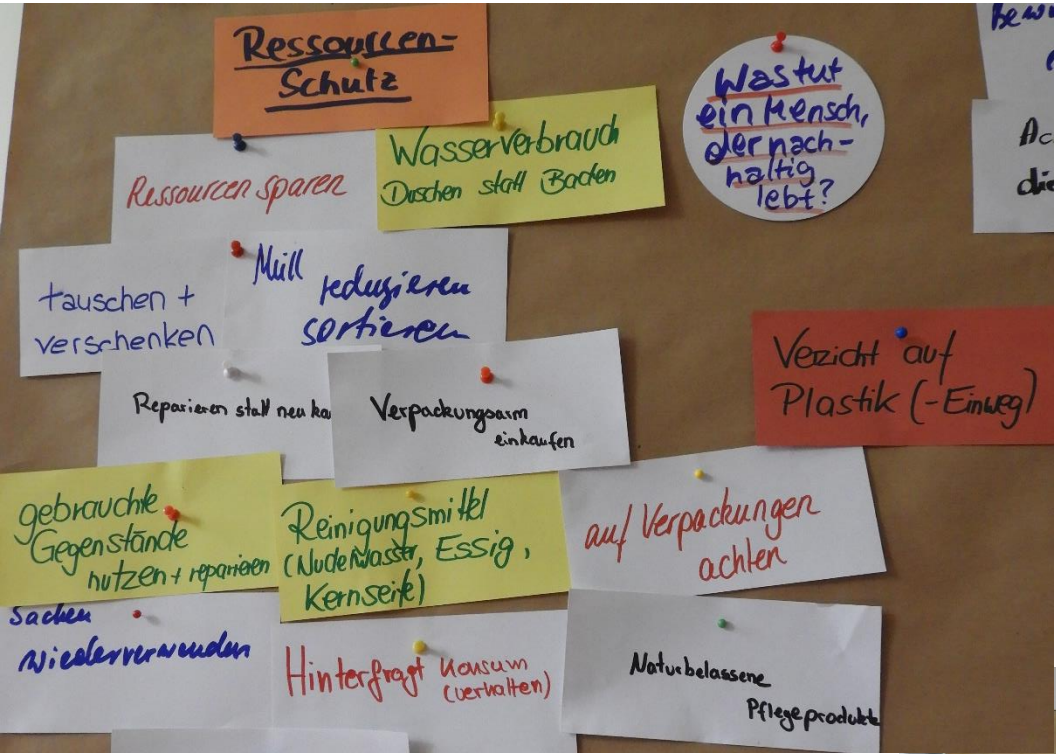 Ressourcen-
Schutz
Was tut
ein Mensch,
der nach-
haltig
lebt?
Ressourcen sparen
Wasserverbrauch
Duschen statt Baden
tauschen +
verschenken
Müll
reduzieren
sortieren
Reparieren statt neu ka
Verpackungsarm
einkaufen
Verzicht auf
Plastik (-Einweg)
gebrauchte
Gegenstände
nutzen + reparieren
Reinigungsmittel
(Nudelwasser, Essig,
Kernseife)
auf Verpackungen
achten
Sachen
wiederverwenden
Hinterfragt Konsum
(verhalten)
Naturbelassene
Pflegeprodukte